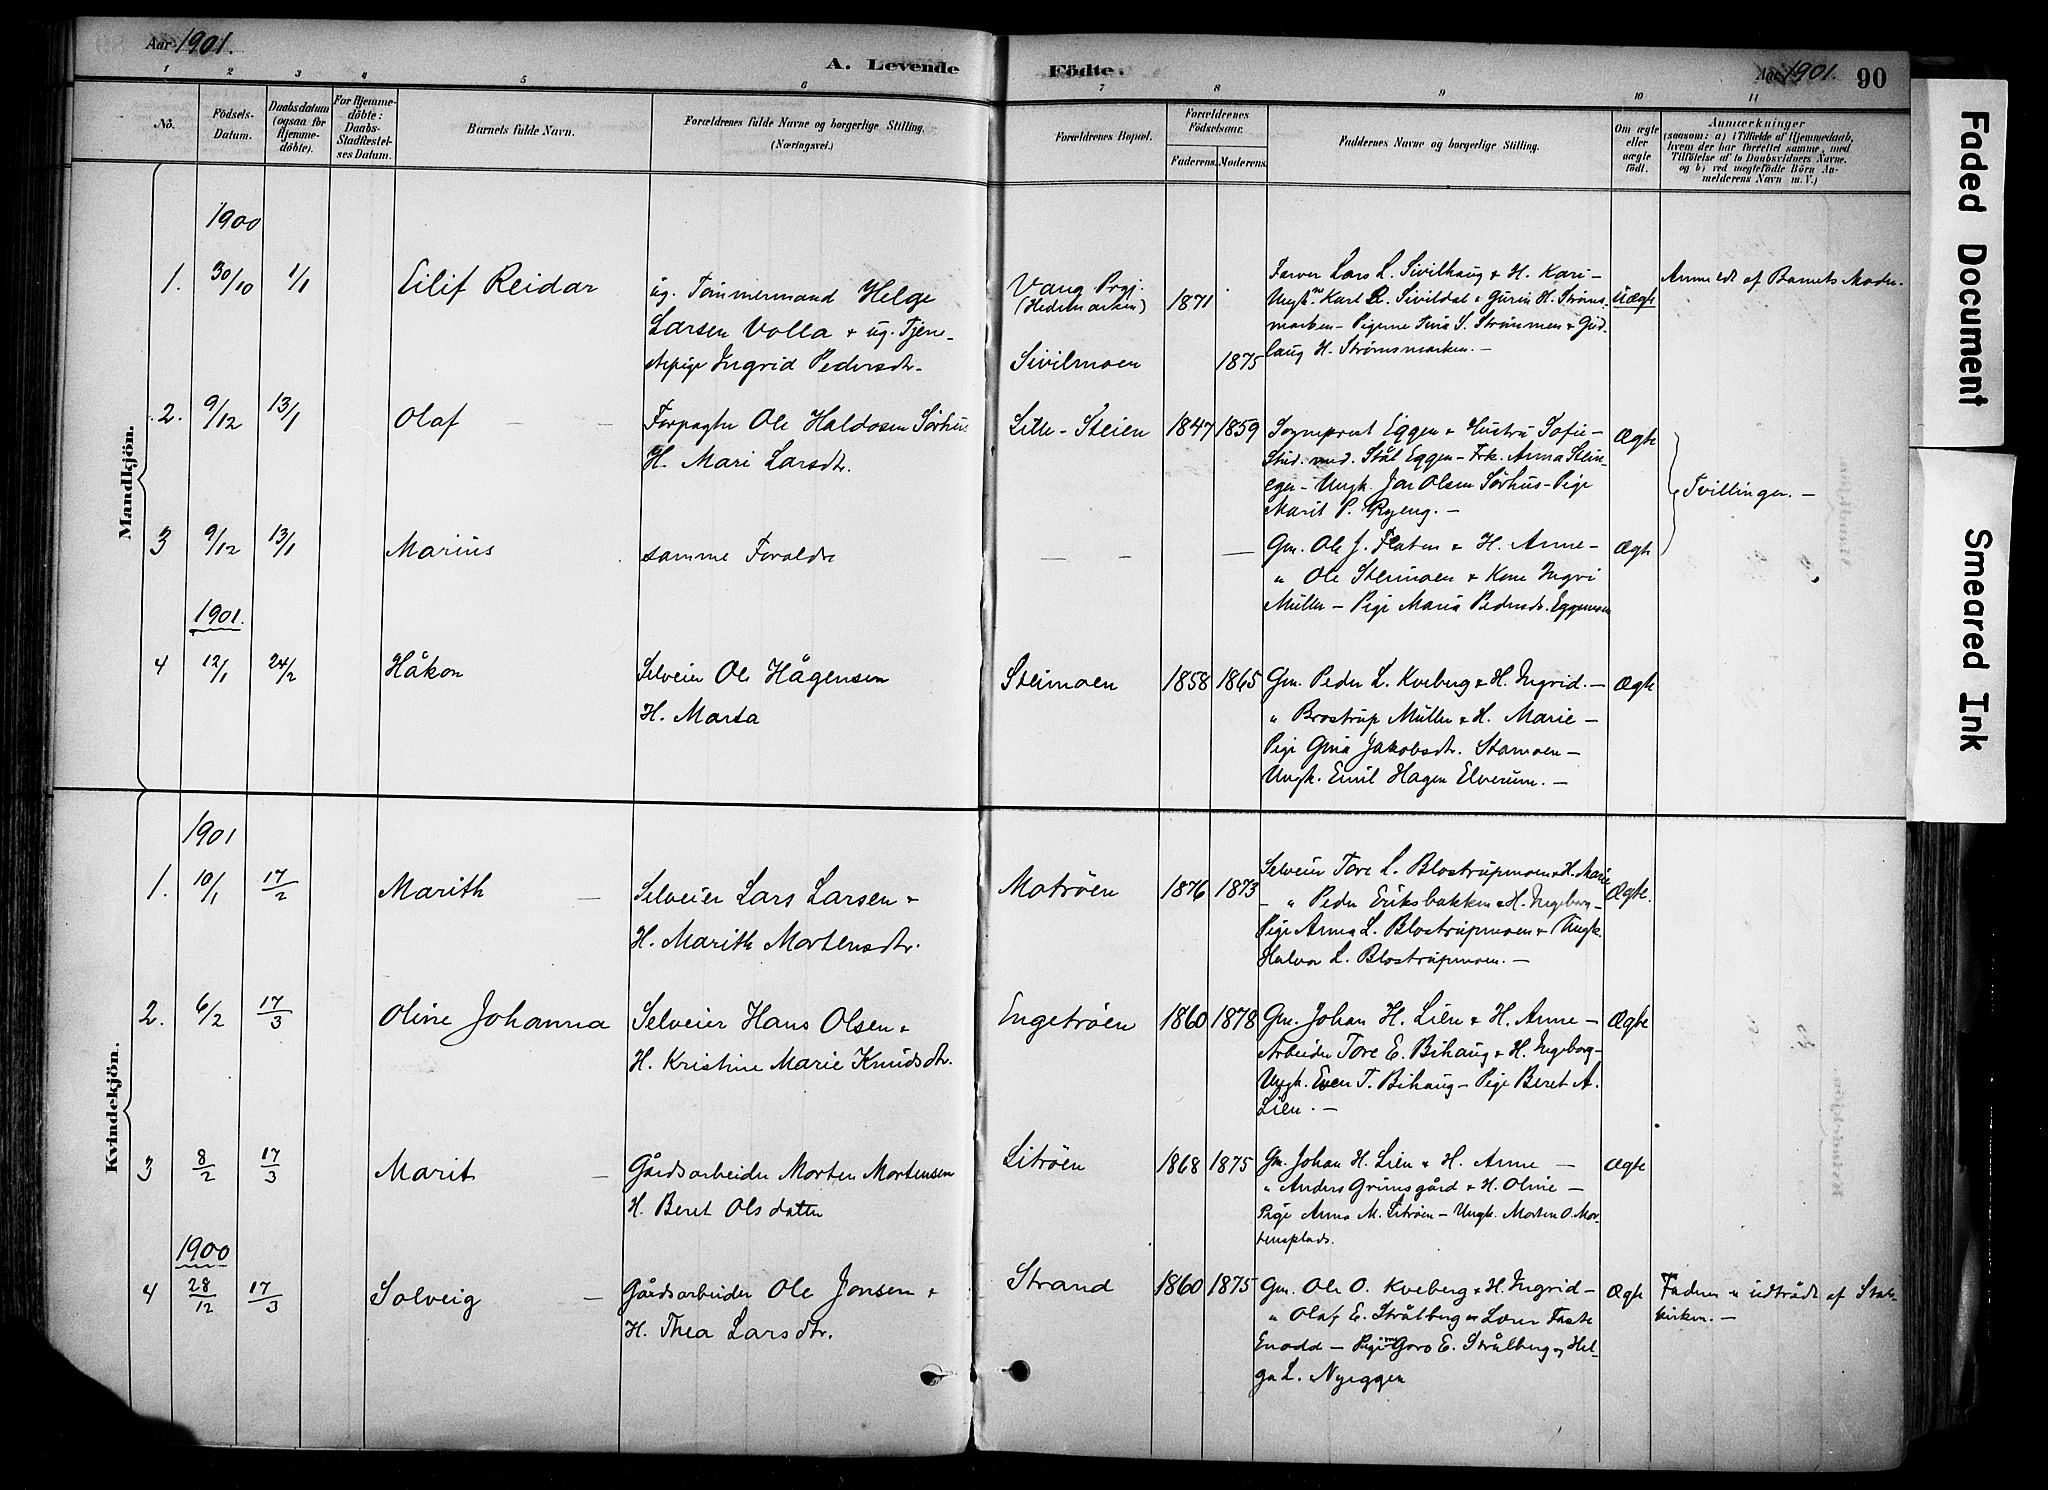 Aar 1901.
A. Levende Födte.
Aar 1901. 90
1 2 3 4 5 6 7 8 9 10 11
No.
Födsels-Datum.
Daabsdatum (ogsaa for Hjemme-döbte).
For Hjemme-döbte: Daabs-Stadfæstel-ses Datum.
Barnets fulde Navn.
Forældrenes fulde Navne og borgerlige Stilling. (Næringsvei.)
Forældrenes Bopæl.
Forældrenes Födselsaar.
Faderens. Moderens.
Faddernes Navne og borgerlige Stilling.
Om ægte eller uægte födt.
Anmærkninger
(saasom: a) i Tilfælde af Hjemmedaab,
hvem der har forrettet samme, med
Tilföielse af to Daabsvidners Navne.
og b) ved uægtefödte Börn An-
melderens Navn m. V.)
Mandkjön.
1900
1. 30/10 1/1 Eilif Reidar
ug. Tømmermand Helge
Larsen Volla & ug. Tjene-
stepige Ingrid Pedersdtr.
Vang Prgj.
(Hedemarken) 1871
Sivilmoen 1875
Farver Lars L. Sivilhaug & H. Kari -
Ungkm Karl R. Sivildal & Guri H. Strøms-
marken - Pigerne Siria S. Strømmen & Gud-
laug H. Strømsmarken. -
Uægte
Anmeldt af Barnets Moder.
2. 9/12 13/1 Olaf - -
Forpagter Ole Haldosen Sørhus
H. Mari Larsdtr.
Lille-Steien 1847 1859
Sogneprest Eggen & Hustru Sofie -
Stud. med. Stål Eggen - Frk. Anna Stein-
eger - Ungk. Jon Olsen Sørhus - Pige
Marit P. Ryeng. -
Ægte
Tvillinger. -
3 9/12 13/1 Marius -
samme Foraldre
- - -
Gm. Ole J. Flaten & H. Anne -
" Ole Steimoen & Kone Ingri
Müller - Pige Maria Pedersdtr. Eggemoen
Ægte
1901.
4 12/1 24/2 Håkon
Selveier Ole Hågensen
H. Marta
Steimoen 1858 1865
Gm. Peder L. Kveberg & H. Ingrid. -
" Brostrup Müller & H. Marie -
Pige Gina Jakobsdtr. Stamoen -
Ungk. Emil Hagen Elverum. -
Ægte
Kvindekjön.
1901
1. 10/1 17/2 Marith -
Selveier Lars Larsen &
H. Marith Mortensdtr.
Motrøen 1876 1873
Selveier Tore L. Blostrupmoen & H. Marie
- " Peder Eriksbakken & H. Ingeborg -
Pige Anna L. Blostrupmoen & Ungk.
Halvor L. Blostrupmoen. -
Ægte.
2. 6/2 17/3 Oline Johanna
Selveier Hans Olsen &
H. Kristine Marie Knudsdtr.
Engetrøen 1860 1878
Gm. Johan H. Lien & H. Anne -
Arbeider Tore E. Bihaug & H. Ingeborg -
Ungk. Even T. Bihaug - Pige Beret A.
Lien. -
Ægte
3 8/2 17/3 Marit -
Gårdsarbeider Morten Mortensen
H. Beret Olsdatter
Litrøen 1868 1875
Gm. Johan H. Lien & H. Anne -
" Anders Grimsgård & H. Oline -
Pige Anna M. Litrøen - Ungk. Morten O. Mor-
tensplads.
Ægte
1900
4 28/12 17/3 Solveig -
Gårdsarbeider Ole Jonsen &
H. Thea Larsdtr.
Strand 1860 1875
Gm. Ole O. Kveberg & H. Ingrid -
" Olaf E. Strålberg og Lærer Faste
Enodd - Pigerne Goro E. Strålberg og Hel-
ga L. Nyeggen
Ægte
Faderen er udtrådt af Stats-
kirken. -
Faded Document
Smeared Ink